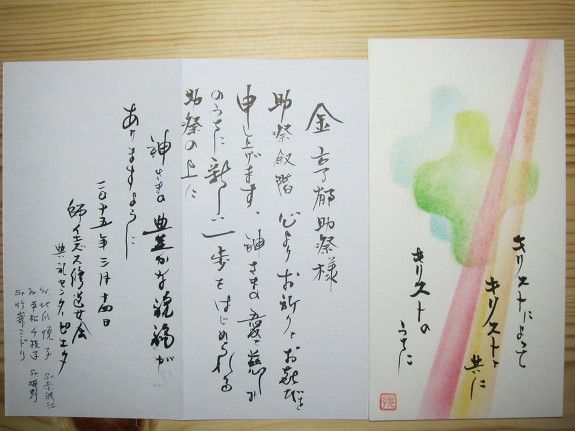 金 度郁助祭様
助祭叙階 心よりお祈りとお喜びを
申し上げます。神さまの愛と慈しみ
のうちに新しい一歩をはじめられる
助祭の上に
神さまの豊かな祝福が
ありますように
二〇十五年三月十四日
師イエズス修道女会
典礼センターピエタ
Sr.
Sr.
Sr.竹峯ミドリ
キリストによって
キリストと
共に
キリストの
うちに